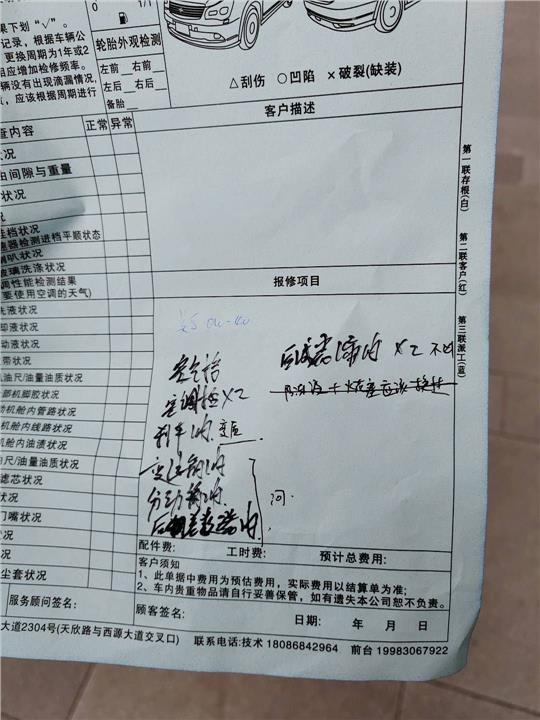 果下划"√"。
记录，根据车辆公
更换周期为1年或2
相应增加检修频率。
辆没有出现滴漏情况，
应该根据周期进行
0 1/1
轮胎外观检测
左前 右前
左后 右后
备胎
△刮伤 ○凹陷 ×破裂(缺装)
查内容 正常 异常
客户描述
状况
由间隙与重量
状况
况
挂档状况
速器检测进档平顺状态
喇叭状况
玻璃洗涤状况
调性能检测结果
要使用空调的天气)
洗液状况
却液状况
动液状况
带状况
机油尺/油量油质状况
部机脚胶状况
动机舱内管路状况
机舱内线路状况
机舱内油渍状况
油尺/油量油质状况
滤芯状况
状况
门嘴状况
状况
尘套状况
报修项目
空调格 X2
刹车油
变速箱油
分动箱油
问.
X2
配件费: 工时费: 预计总费用:
客户须知
1、此单据中费用为预估费用，实际费用以结算单为准;
2、车内贵重物品请自行妥善保管，如有遗失本公司恕不负责。
服务顾问签名: 顾客签名: 日期: 年 月 日
大道2304号(天欣路与西源大道交叉口) 联系电话:技术 18086842964 前台 19983067922
第一联存根(白)
第二联客户(红)
第三联派工(蓝)